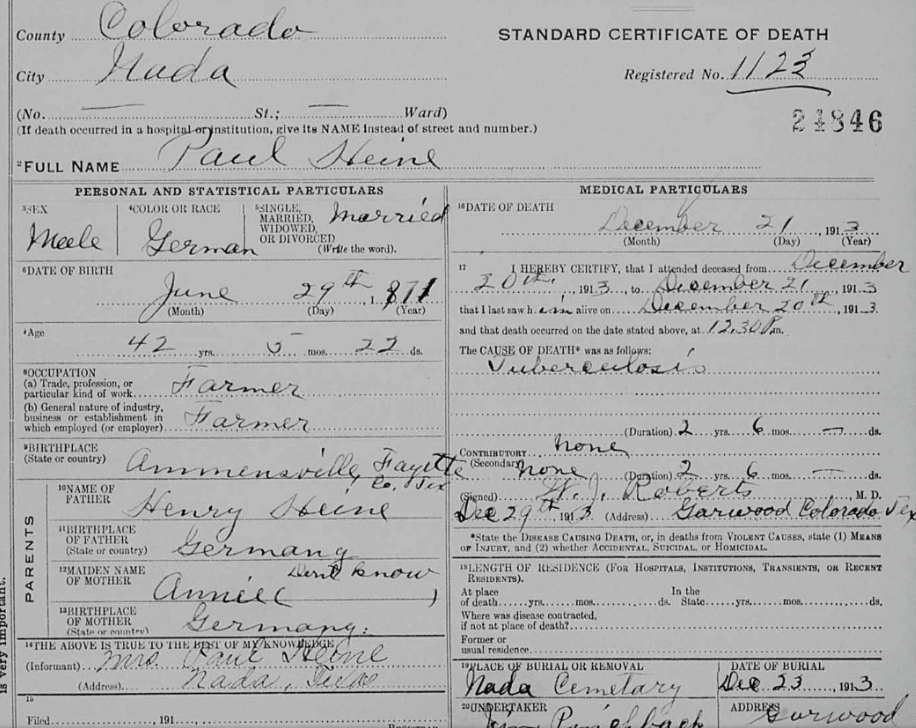 County Colorado
City Nada
(No. — St.; — Ward)
(If death occurred in a hospital or institution, give its NAME instead of street and number.)
STANDARD CERTIFICATE OF DEATH
Registered No. 1123
24846
2 FULL NAME Paul Heine
PERSONAL AND STATISTICAL PARTICULARS
3 SEX
Meele
4 COLOR OR RACE
German
5 SINGLE, MARRIED, WIDOWED, OR DIVORCED (Write the word).
Married
6 DATE OF BIRTH
June 29th, 1,871
(Month) (Day) (Year)
Age
42 yrs. 5 mos. 22 ds.
8 OCCUPATION
(a) Trade, profession, or
particular kind of work Farmer
(b) General nature of industry,
business or establishment in
which employed (or employer) Farmer
9 BIRTHPLACE
(State or country) Ammensville, Fayette
Co, Tex
PARENTS
10 NAME OF
FATHER Henry Heine
11 BIRTHPLACE
OF FATHER
(State or country) Germany
12 MAIDEN NAME
OF MOTHER Annie ( Dont know )
13 BIRTHPLACE
OF MOTHER
(State or country) Germany.
14 THE ABOVE IS TRUE TO THE BEST OF MY KNOWLEDGE
(Informant) Mrs Paul Heine
(Address) Nada, Texas
15
Filed , 191
is very important.
MEDICAL PARTICULARS
16 DATE OF DEATH
December 21, 1913
(Month) (Day) (Year)
17 I HEREBY CERTIFY, that I attended deceased from December
20th, 1913, to December 21, 1913
that I last saw him alive on December 20th, 1913
and that death occurred on the date stated above, at 12,30 P.m.
The CAUSE OF DEATH* was as follows:
Tuberculosis
(Duration) 2 yrs. 6 mos. — ds.
CONTRIBUTORY none
(Secondary) none (Duration) 2 yrs. 6 mos. — ds.
(Signed) W. J. Roberts, M. D.
Dec 29th, 1913 (Address) Garwood Colorado Tex
*State the DISEASE CAUSING DEATH, or, in deaths from VIOLENT CAUSES, state (1) MEANS
OF INJURY, and (2) whether ACCIDENTAL, SUICIDAL, OR HOMICIDAL.
18 LENGTH OF RESIDENCE (FOR HOSPITALS, INSTITUTIONS, TRANSIENTS, OR RECENT
RESIDENTS).
At place In the
of death yrs. mos. ds. State yrs. mos. ds.
Where was disease contracted,
if not at place of death?
Former or
usual residence
19 PLACE OF BURIAL OR REMOVAL
Nada Cemetary
DATE OF BURIAL
Dec 23, 1913
20 UNDERTAKER
ADDRESS
Garwood